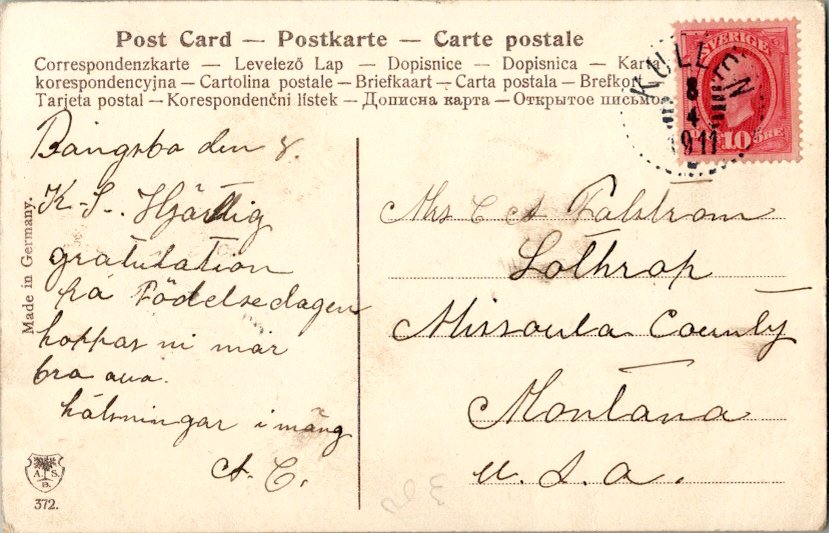 Post Card — Postkarte — Carte postale
Correspondenzkarte — Levelező Lap — Dopisnice — Dopisnica — Karta
korespondencyjna — Cartolina postale — Briefkaart — Carta postala — Brefkor
Tarjeta postal — Korespondenční lístek — Дописна карта — Открытое письмо
SVERIGE
10 ÖRE
KULLEN
8
4
1911
Bångsbo den 8.
K-S-. Hjärtlig
gratulation
på Födelsedagen
hoppas ni mår
bra
hälsningar i mäng
A. C.
Mrs C A Falstrom
Lothrop
Missoula County
Montana
U. S. A.
Made in Germany.
A. S.
B.
372.